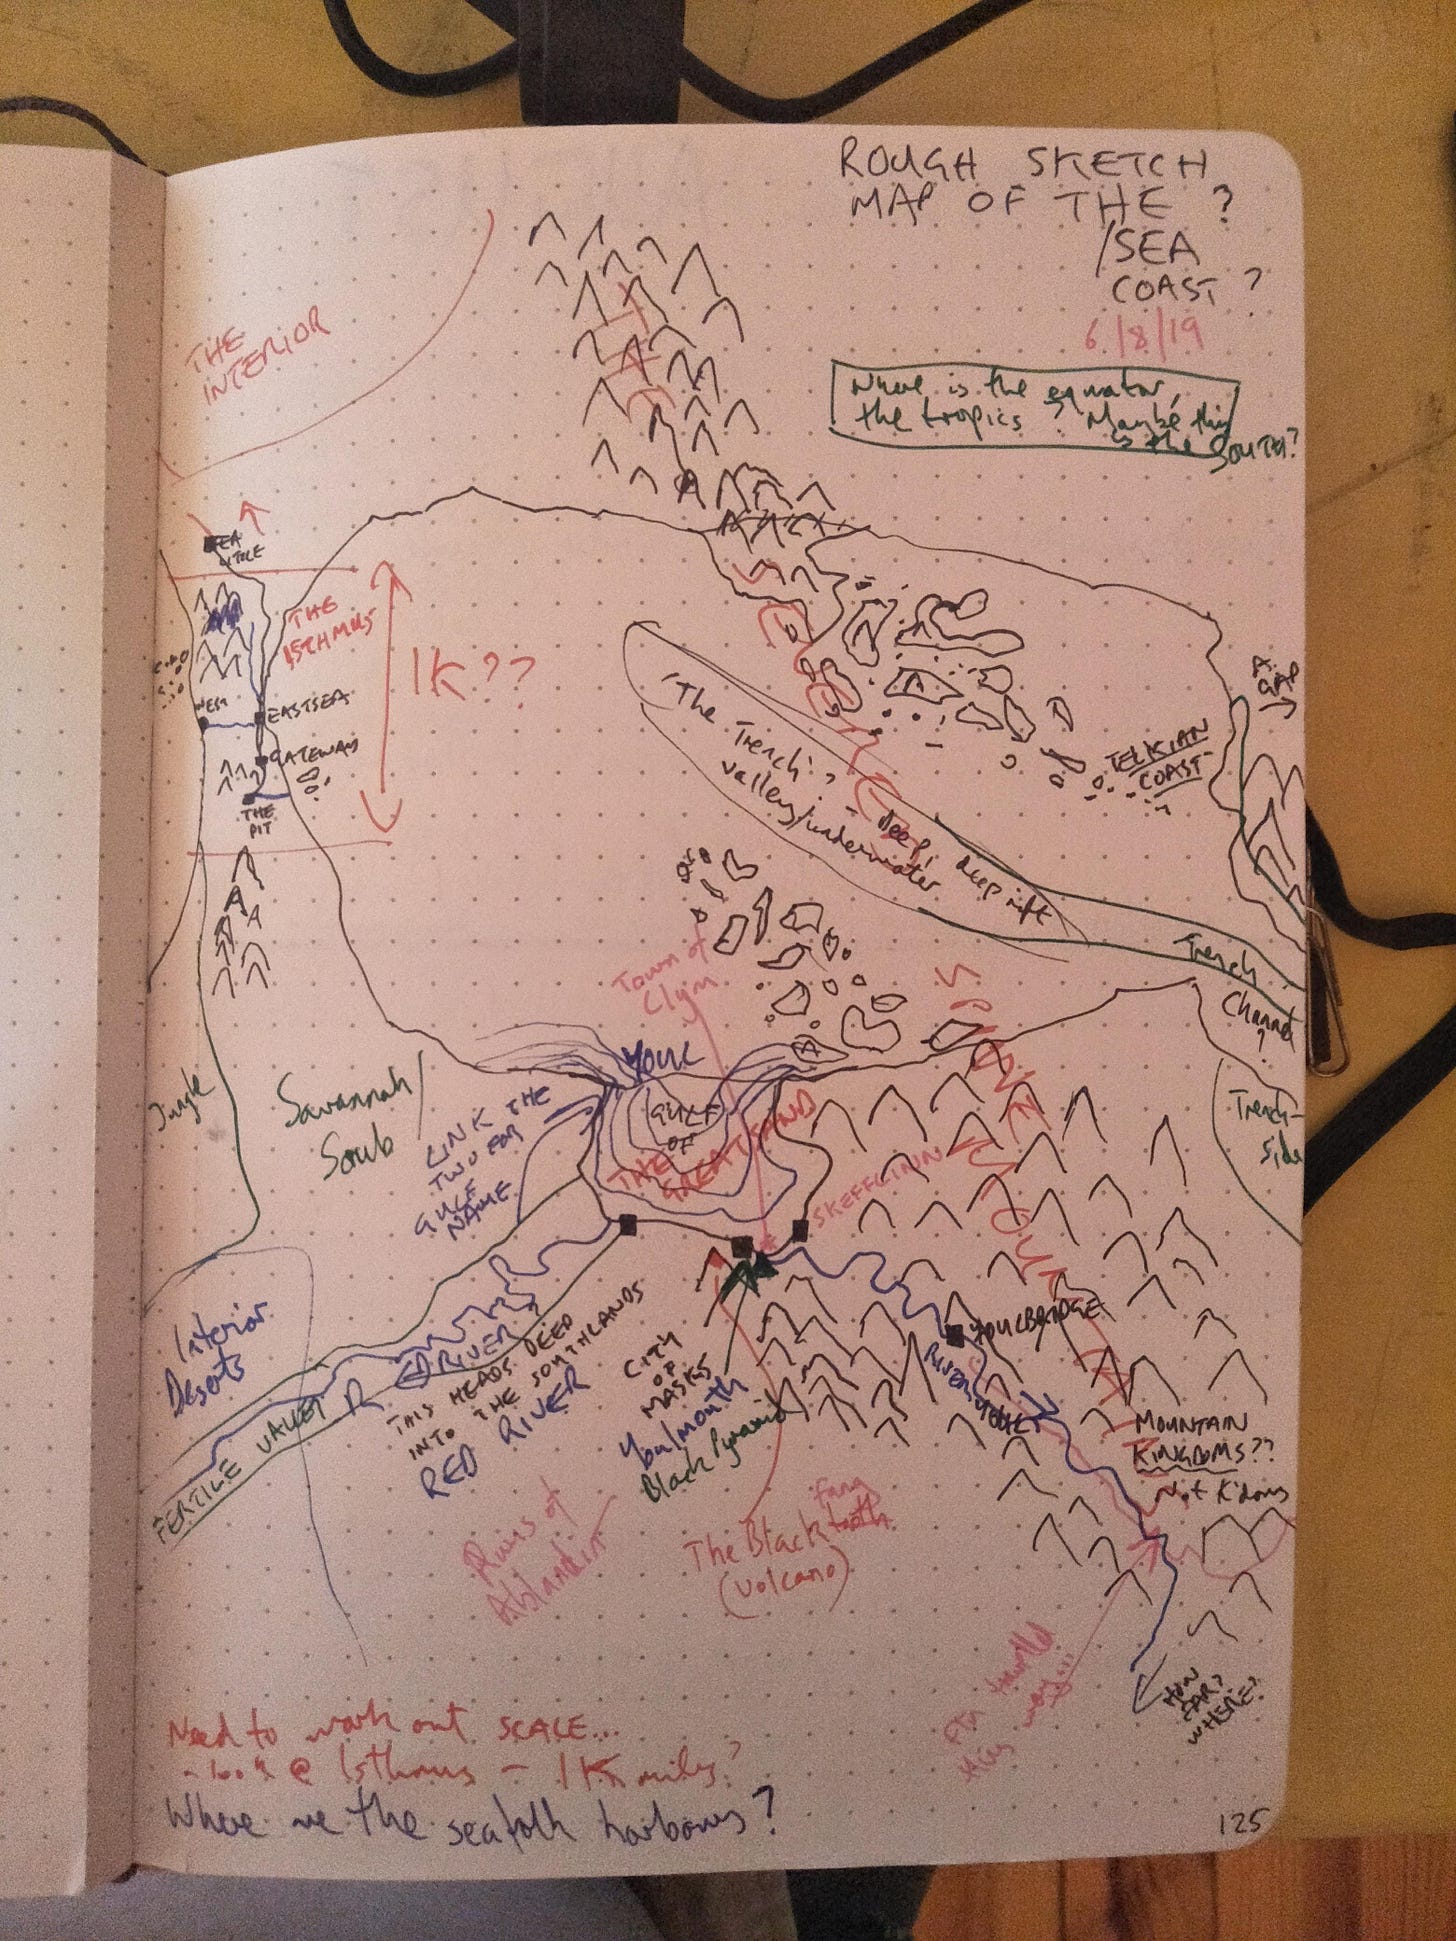 ROUGH SKETCH
MAP OF THE ?
/SEA
COAST ?
6/8/19
Where is the equator,
the tropics? Maybe this
is the SOUTH?
THE
INTERIOR
THE
ISTHMUS
1K??
WEST
EASTSEA
GATEWAY
THE
PIT
A
GAP
TELKIAN
COAST
The Trench? -
valley/underwater
deep, deep rift
Trench
Channel
?
Trench-
side
Town of
Clym
YOUL
GULF
OF
THE
GREAT
LINK THE
TWO FOR
GULF
NAME
Jungle
Savannah/
Scrub
SKEFFLINN
SPINE
Interior
Deserts
FERTILE VALLEY
RED RIVER
THIS HEADS DEEP
INTO THE SOUTHLANDS
RED RIVER
CITY
OF
MASKS
Youlmouth
Black Pyramid
YOULBRIDGE
RIVER YOUL
MOUNTAIN
KINGDOMS??
Not K'doms
Ruins of
The Black tooth
fang
(volcano)
HOW
FAR?
WHERE?
Need to work out SCALE...
@ Isthmus - 1K miles?
Where are the seafolk harbours?
125